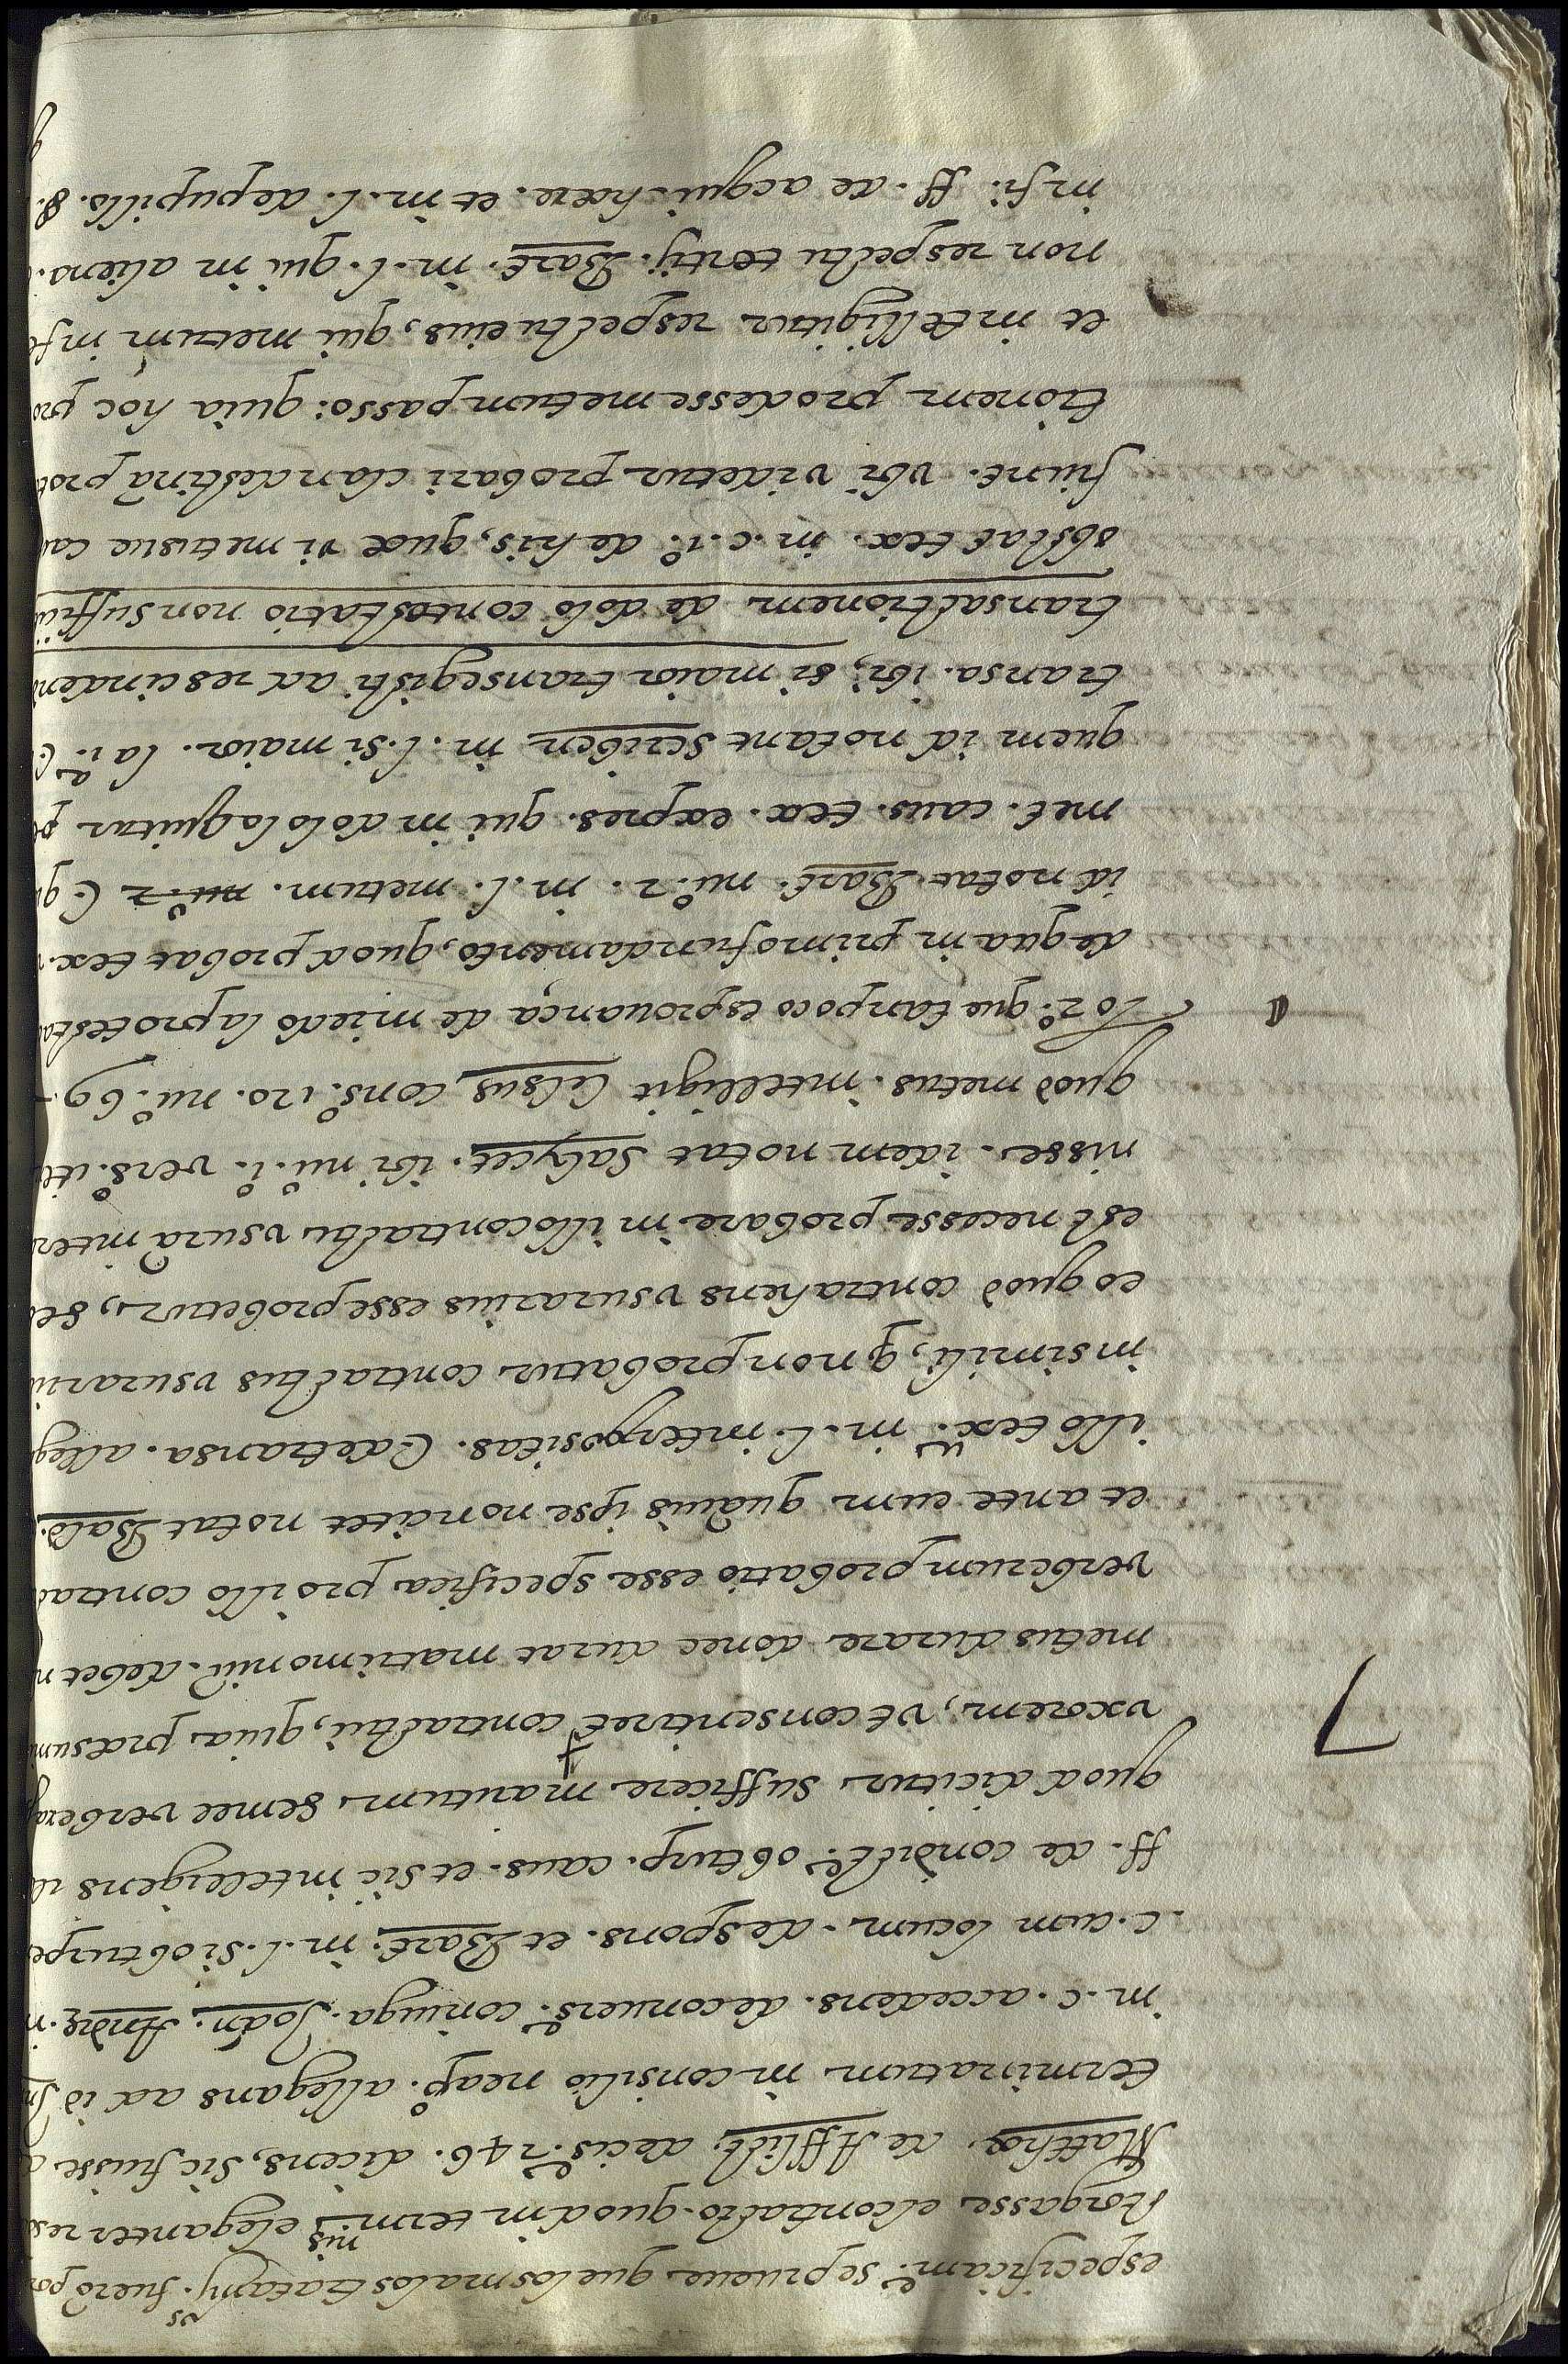 especificam.te se prueue que los malos tratamy.os fuerō po
storgasse el contracto. quod in term.nis eleganter res
Matthæ. de Afflict. decis. 246. dicens, sic fuisse
terminatum in consilio neap.o allegans ad id
in. c. accedens. de conuers. coniuga. Joan. Andr.
c. cum locum. de spons. et Bart. in. l. si ob turpe
ff. de condict.e ob turp. caus. et sic intelligens
quod dicitur sufficere maritum semel verbera
vxorem, vt consentiret contractui, quia præsum
metus durare donec durat matrimoniū. debet
verberum probatio esse specifica pro illo contra
et ante eum quāuis ipse non citet notat Bald.
illo tex. in. l. interpositas. C. de transa. alleg
in simili, q non probatur contractus vsurari
eo quod contrahens vsurarius esse probetur, se
est necesse probare in illo contractu vsurā inter
nisse. idem notat Salycet. ibi nu.o 1.o vers.o it
quod metus. intelligit Celsus cons.o 120. nu.o 69.
Lo 2.o que tanpoco es prouança de miedo la protesta
de qua in primo fundamento, quod probat tex.
id notat Bart. nu.o 2. in. l. metum. C. q
met. caus. tex. expres. qui in dolo loquitur
quem id notant scriben. in. l. si maior. la 1.a C.
transa. ibi, si maior transegisti ad rescinden
transactionem de dolo contestatio non suffi
obstat tex. in. c. 1.o de his, quæ vi metusue ca
fiunt. vbi videtur probari clandestinā pro
tionem prodesse metum passo: quia hoc pro
et intelligitur respectu eius, qui metum inf
non respectu tertij. Bart. in. l. qui in aliena.
in fi. ff. de acqui. hære. et in. l. de pupillo. 8.